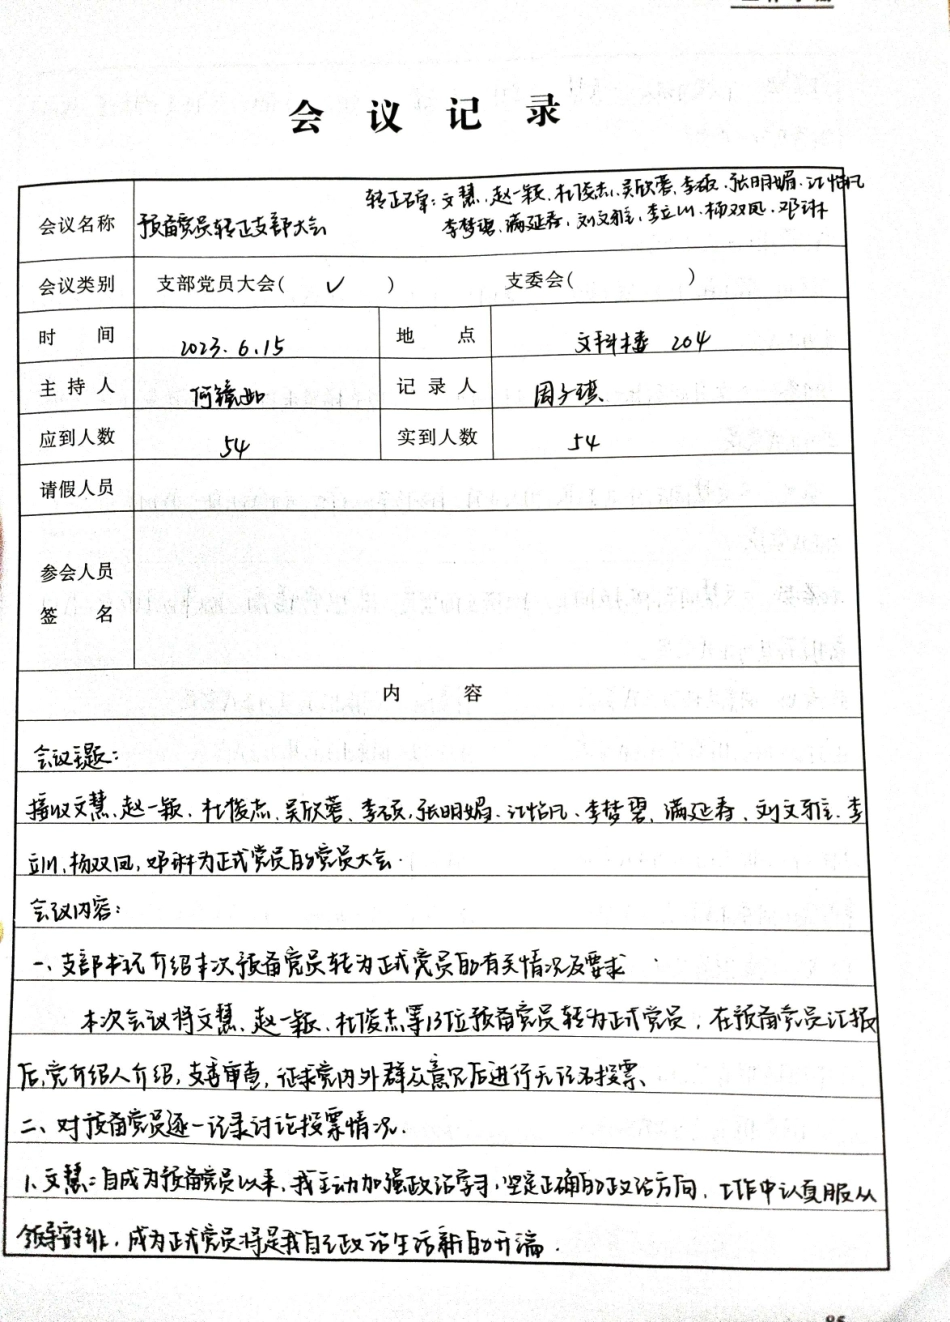 会议记录
转正名单:文慧、赵一颖、杜俊杰、吴欣蓉、李硕、张明媚、江怡凡
会议名称 预备党员转正支部大会 李梦碧、满延春、刘文雅、李立川、杨双凤、邓琳
会议类别 支部党员大会( ✓ ) 支委会( )
时 间 2023.6.15 地 点 文科楼 204
主持人 记录人 周子琪
应到人数 54 实到人数 54
请假人员
参会人员
签 名
内 容
会议主题:
接收文慧、赵一颖、杜俊杰、吴欣蓉、李硕、张明媚、江怡凡、李梦碧、满延春、刘文雅、李
立川、杨双凤,邓琳为正式党员的党员大会.
会议内容:
一、支部书记介绍本次预备党员转为正式党员的有关情况及要求
本次会议将文慧、赵一颖、杜俊杰等13位预备党员转为正式党员,在预备党员汇报
后,党介绍人介绍,支委审查,征求党内外群众意见后进行无记名投票、
二、对预备党员逐一记录讨论投票情况.
1、文慧:自成为预备党员以来,我主动加强政治学习,坚定正确的政治方向,工作中认真服从
领导安排,成为正式党员将是我自己政治生活新的开端.